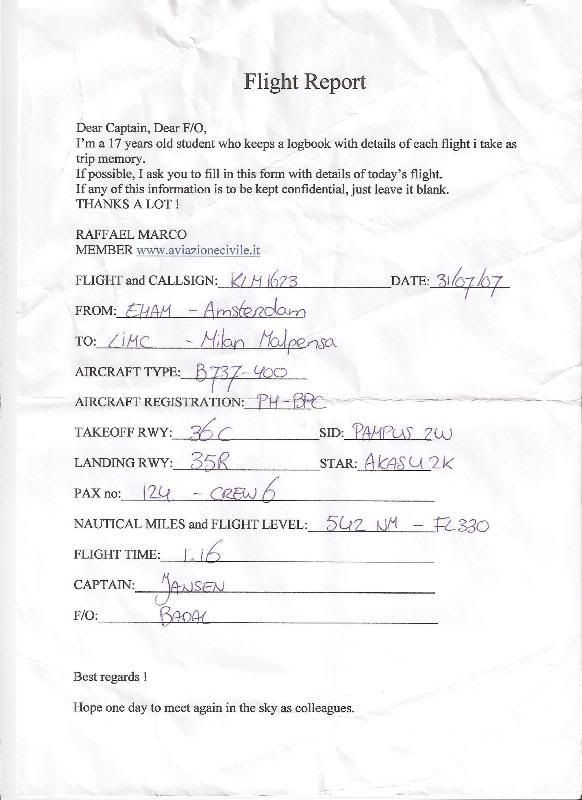 Flight Report
Dear Captain, Dear F/O,
I'm a 17 years old student who keeps a logbook with details of each flight i take as
trip memory.
If possible, I ask you to fill in this form with details of today's flight.
If any of this information is to be kept confidential, just leave it blank.
THANKS A LOT !
RAFFAEL MARCO
MEMBER www.aviazionecivile.it
FLIGHT and CALLSIGN: KLM1623 DATE: 31/07/07
FROM: EHAM - Amsterdam
TO: LIMC - Milan Malpensa
AIRCRAFT TYPE: B737-400
AIRCRAFT REGISTRATION: PH-BPC
TAKEOFF RWY: 36C SID: PAMPUS 2W
LANDING RWY: 35R STAR: AKASU 2K
PAX no: 124 - CREW 6
NAUTICAL MILES and FLIGHT LEVEL: 542 NM - FL330
FLIGHT TIME: 1.16
CAPTAIN: JANSEN
F/O: BADAL
Best regards !
Hope one day to meet again in the sky as colleagues.